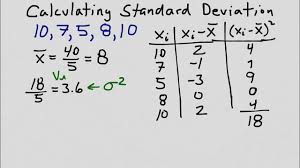 Calculating Standard Deviation
10, 7, 5, 8, 10
x̄ = 40/5 = 8
18/5 = 3.6 ← σ²
xᵢ xᵢ-x̄ (xᵢ-x̄)²
10 2 4
7 -1 1
5 -3 9
8 0 0
10 2 4
18